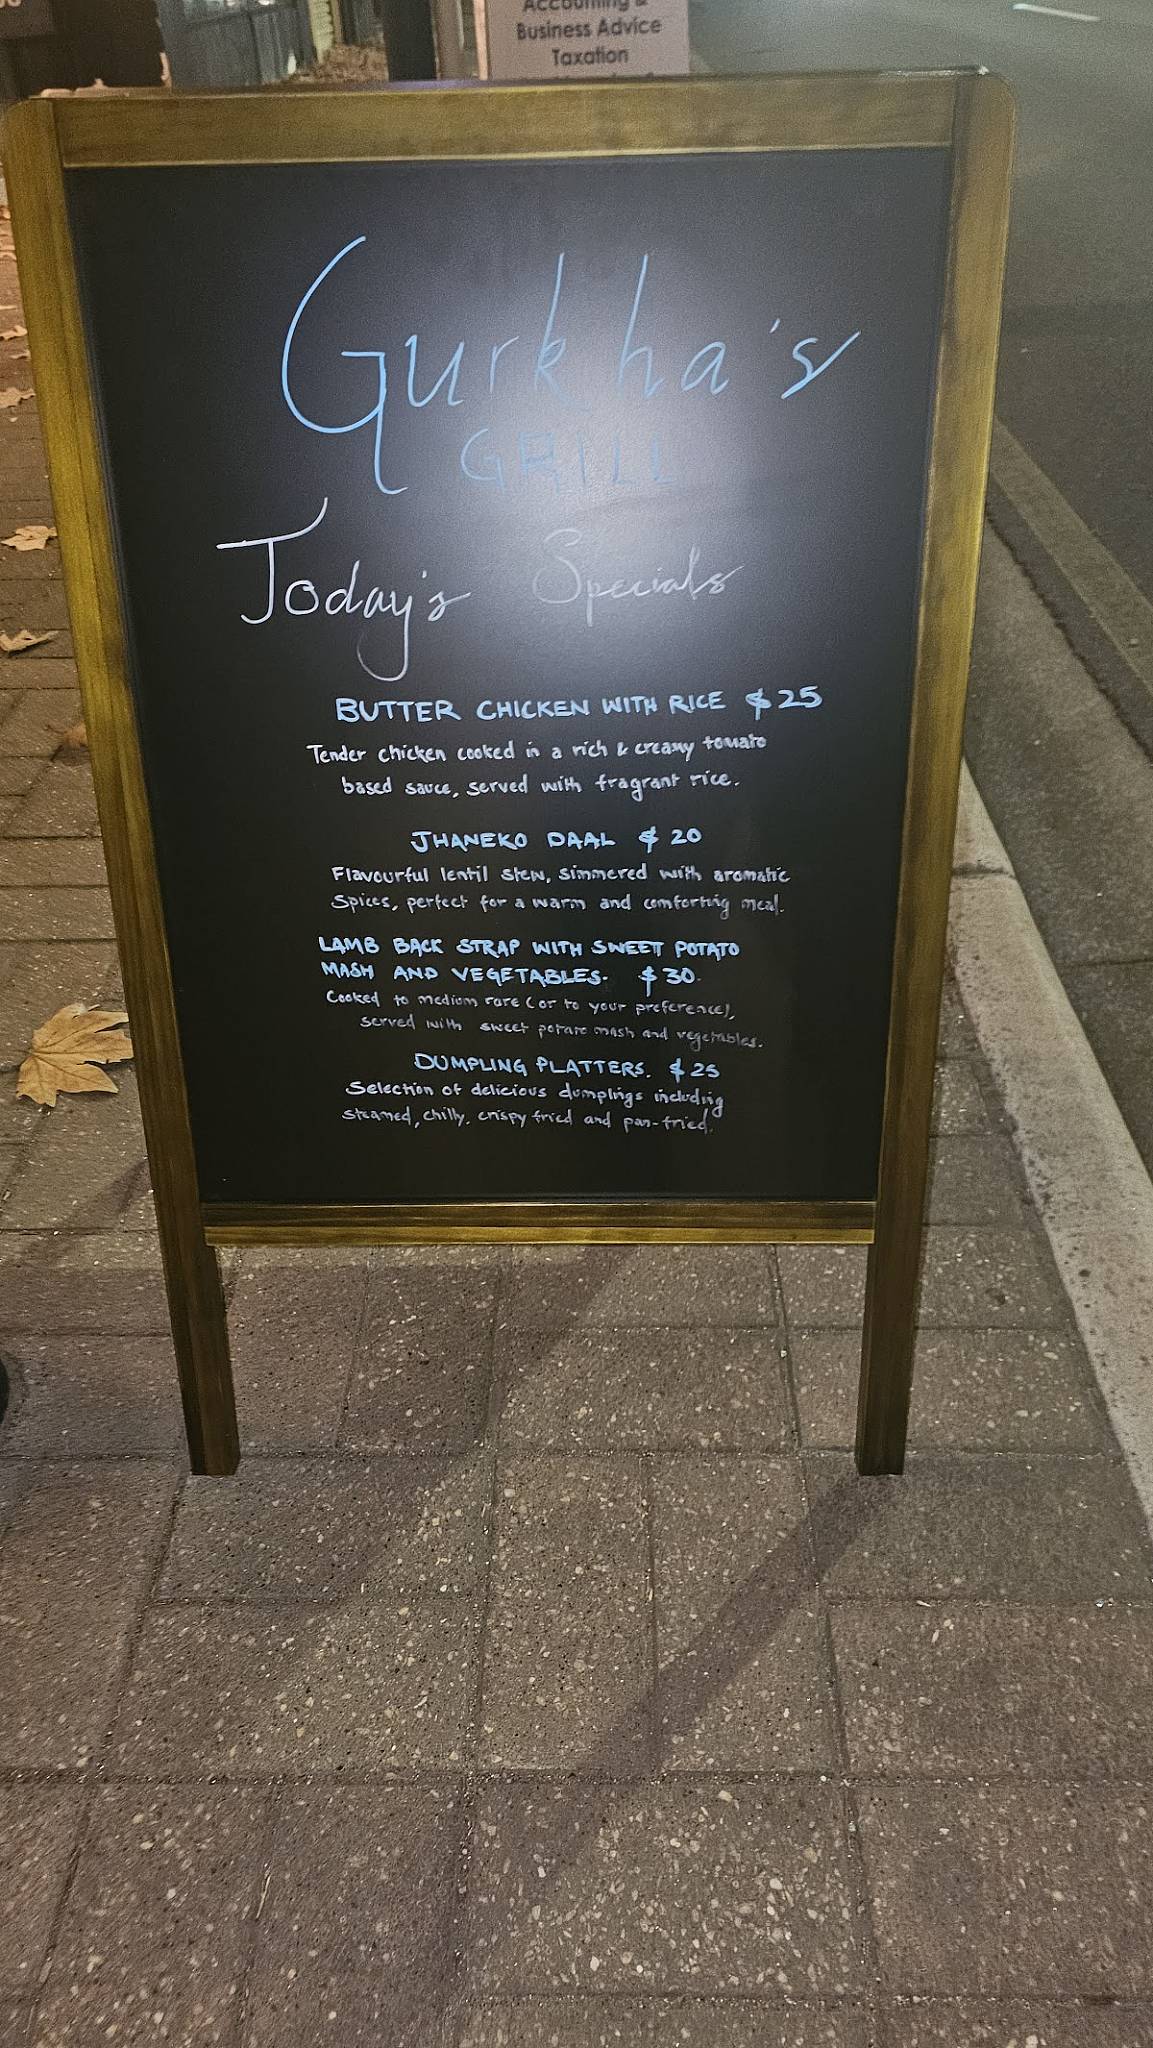 Accounting &
Business Advice
Taxation
Gurkha's
GRILL
Today's Specials
BUTTER CHICKEN WITH RICE $25
Tender chicken cooked in a rich & creamy tomato
based sauce, served with fragrant rice.
JHANEKO DAAL $20
Flavourful lentil stew, simmered with aromatic
spices, perfect for a warm and comforting meal.
LAMB BACK STRAP WITH SWEET POTATO
MASH AND VEGETABLES. $30.
Cooked to medium rare (or to your preference),
served with sweet potato mash and vegetables.
DUMPLING PLATTERS. $25
Selection of delicious dumplings including
steamed, chilly, crispy fried and pan-fried.